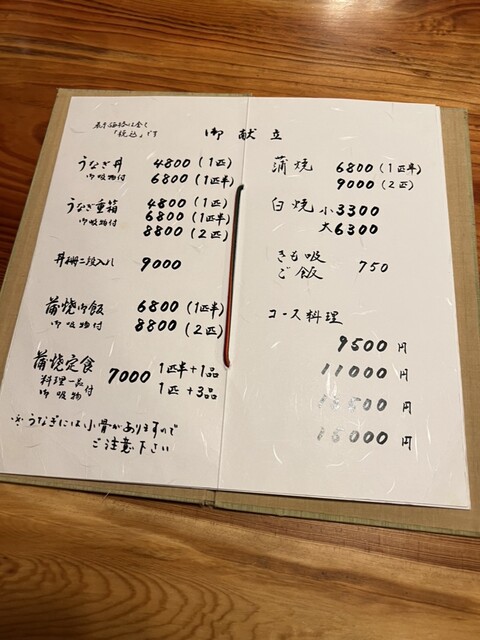 御献立
「税込」です
うなぎ丼 4800(1匹)
御吸物付 6800(1匹半)
うなぎ重箱 4800(1匹)
御吸物付 6800(1匹半)
8800(2匹)
丼 二段入れ 9000
蒲焼御飯 6800(1匹半)
御吸物付 8800(2匹)
蒲焼定食 7000 1匹半+1品
料理一品付 1匹+3品
御吸物
※うなぎには小骨がありますので
ご注意下さい
蒲焼 6800(1匹半)
9000(2匹)
白焼 小3300
大6300
きも吸
ご飯 750
コース料理
9500円
11000円
500円
15000円